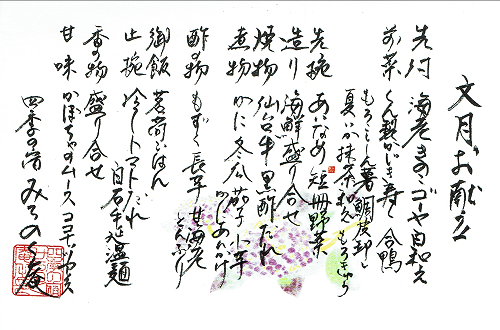 文月お献立
先付 海老きのこゴーヤ白和え
前菜 くん製かじき寿し 合鴨
もろこし 鯛皮卸し
夏いか抹茶和え もろきゅう
先椀 あいなめ 短冊野菜
造り 海鮮盛り合せ
焼物 仙台牛黒酢だれ
煮物 かに 冬瓜 茄子 小芋
かにあんかけ
酢の物 もずく 長芋 甘海老
とんぶり
御飯 茗荷ごはん
止椀 冷しトマトだれ
白石牛乳温麺
香の物 盛り合せ
甘味 かぼちゃのムース ココナッツソース
四季の宿 みちのく庵